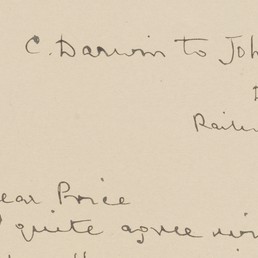 C. Darwin to Joh
Railw
ear Price
I quite agree wi